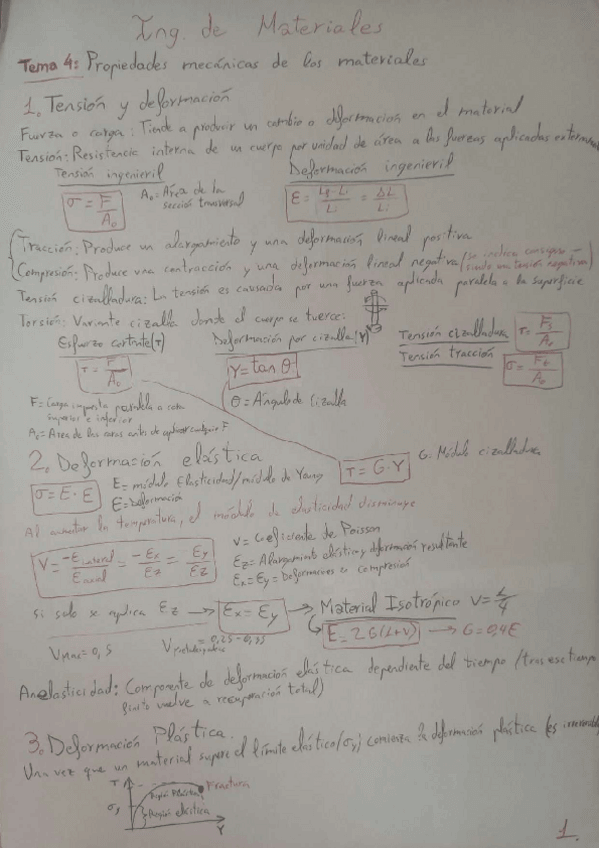 Ing. de Materiales
Tema 4: Propiedades mecánicas de los materiales
1. Tensión y deformación
Fuerza o carga: Tiende a producir un cambio o deformación en el material
Tensión: Resistencia interna de un cuerpo por unidad de área a las fuerzas aplicadas
Tensión ingenieril
Deformación ingenieril
σ = F/A₀
A₀ = Área de la sección trasversal
Ɛ = Lf - Li / Li = ΔL / Li
Tracción: Produce un alargamiento y una deformación lineal positiva
Compresión: Produce una contracción y una deformación lineal negativa (se indica
tensión negativa)
Tensión cizalladura: La tensión es causada por una fuerza aplicada paralela a la superficie
Torsión: Variante cizalla donde el cuerpo se tuerce:
Esfuerzo cortante (τ)
Deformación por cizalla (γ)
Tensión cizalladura
Tensión tracción
τ = F/A₀
γ = tan θ
F = Carga impuesta paralela a cara
superior e inferior
θ = Ángulo de cizalla
A₀ = Area de las caras antes de aplicar cualquier F
2. Deformación elástica
τ = G · γ
G: Módulo cizalladura
σ = E · Ɛ
E = módulo Elasticidad/módulo de Young
Ɛ = Deformación
Al aumentar la temperatura, el módulo de elasticidad disminuye
V = -Ɛ lateral / Ɛ axial = -Ɛx / Ɛz = Ɛy / Ɛz
V = Coeficiente de Poisson
Ɛz = Alargamiento elástico y deformación resultante
Ɛx = Ɛy = Deformaciones compresión
si solo se aplica Ɛz → Ɛx = Ɛy → Material Isotrópico
E = 2G(1+V) → G = 0,4E
Vmax = 0,5
= 0,25 - 0,35
Anelasticidad: Componente de deformación elástica dependiente del tiempo (tras ese tiempo
finito vuelve a recuperación total)
3. Deformación Plástica.
Una vez que un material supere el límite elástico (σy) comienza la deformación plástica (es
τ
Fractura
σy
Región elástica
γ
1.